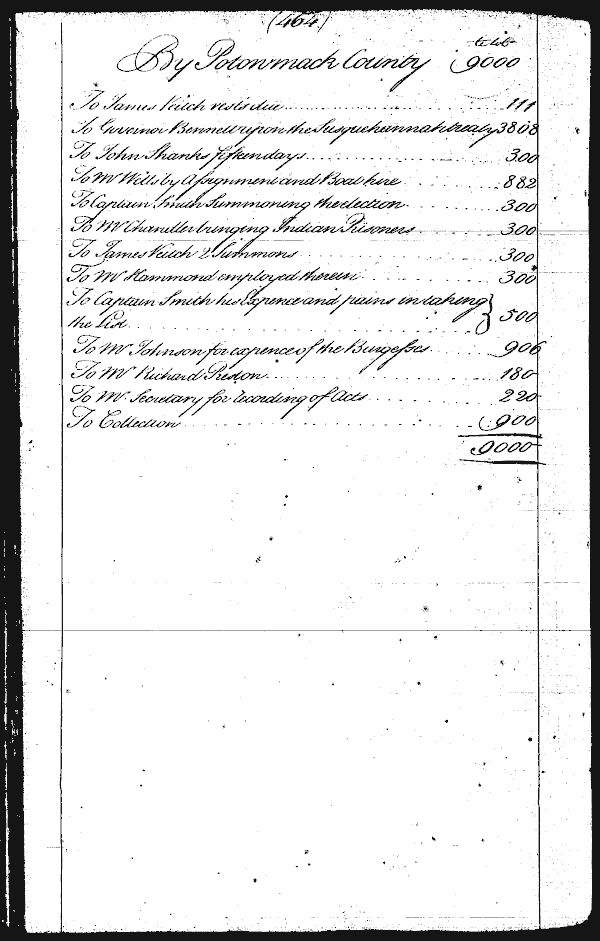 (464)
By Potowmack County to lib 9000
To James Veitch rests due 111
To Governor Bennett upon the Susquehannah treaty 3808
To John Shanks fifteen days 300
To Mr Wills by Assignment and Boat hire 882
To Captain Smith Summoning the election 300
To Mr Chandler bringing Indian Prisoners 300
To James Veitch 2 Summons 300
To Mr Hammond employed therein 300
To Captain Smith his Expence and pains in taking
the List 500
To Mr Johnson for expence of the Burgesses 906
To Mr Richard Preston 180
To Mr Secretary for recording of Acts 220
To Collection 900
9000